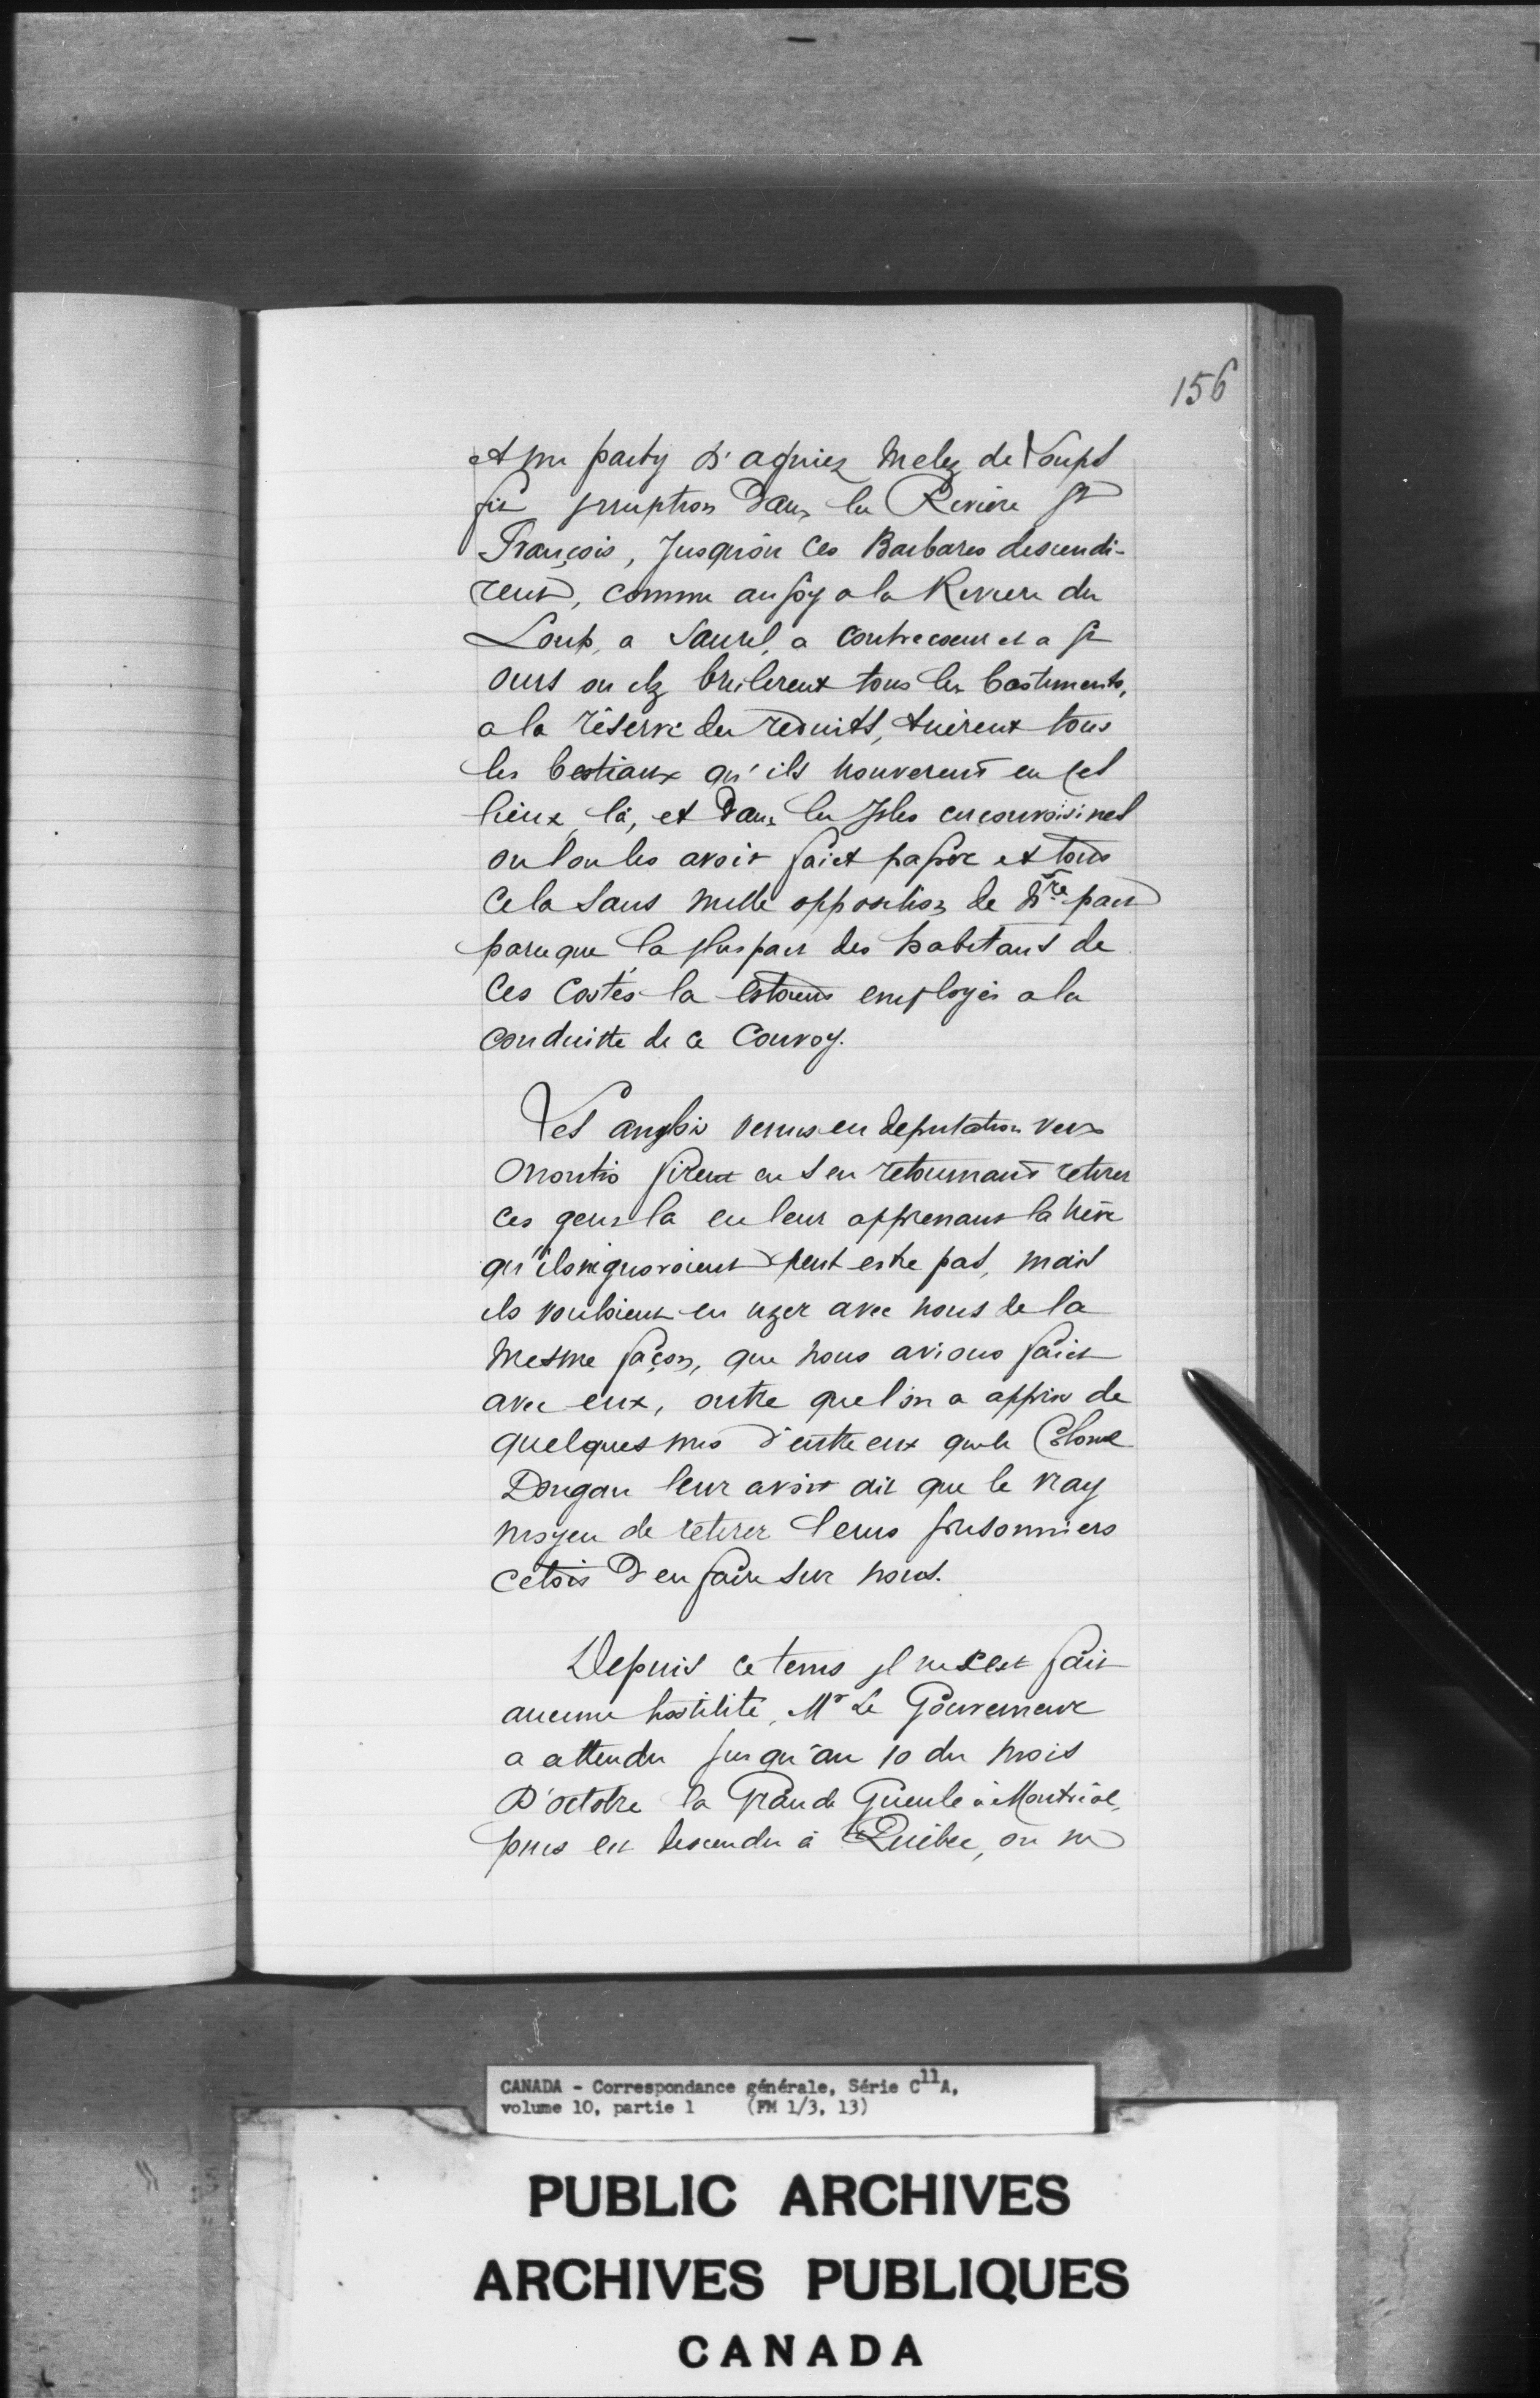 156
et un party d'agniez melez de Loups
fit jrruption dans la Riviere St
François, jusqu'ou ces Barbares descendi-
rent, comme aussy a la Riviere du
Loup, a Saurel, a Contrecoeur et a St
ours ou ilz brulerent tous les bastiments,
a la réserve des reduits, tuèrent tous
les bestiaux qu'ils trouverent en ces
lieux là, et dans les Isles circonvoisines
ou l'on les avoit faict passer et tous
cela sans nulle opposition de nre part
parceque la pluspart des habitans de
ces costés la estoient employés a la
conduitte de ce Convoy.
Les anglois venus en deputation vers
Onontio firent en s'en retournant retirer
ces gens la en leur apprenant la trève
qu'ils n'ignoroient peut estre pas, mais
ils vouloient en uzer avec nous de la
mesme façon, que nous avions faict
avec eux, outre que l'on a appris de
quelques uns d'entre eux que le Colonel
Dongan leur avoit dit que le vray
moyen de retirer leurs prisonniers
cetois d'en faire sur nous.
Depuis ce tems jl ne s'est fait
aucune hostilité, Mr Le Gouverneur
a attendu jusqu'au 10 du mois
D'octobre la Grande Gueule à Montréal,
puis est descendu à Quebec, ou ne
CANADA - Correspondance générale, Série C11A,
volume 10, partie 1 (FM 1/3, 13)
PUBLIC ARCHIVES
ARCHIVES PUBLIQUES
CANADA